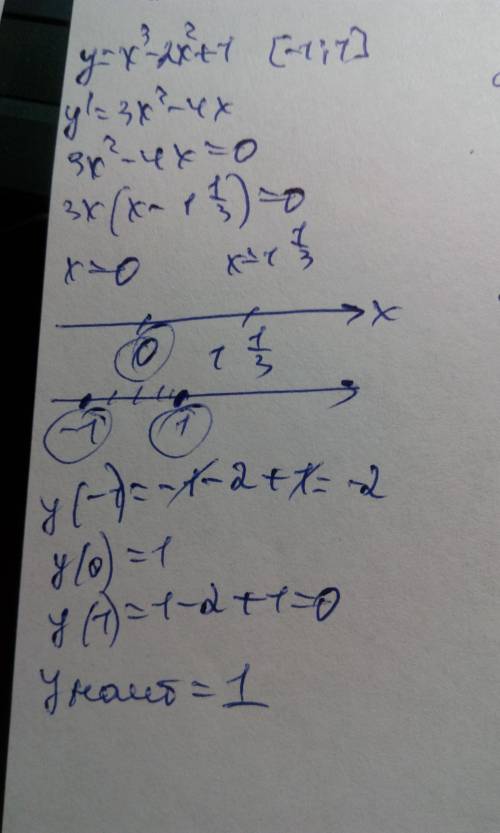 y=x³-2x²+1 [-1;1]
y'=3x²-4x
3x²-4x=0
3x(x-1 1/3)=0
x=0 x=1 1/3
x
0 1 1/3
-1 1
y(-1)=-1-2+1=-2
y(0)=1
y(1)=1-2+1=0
y наиб=1